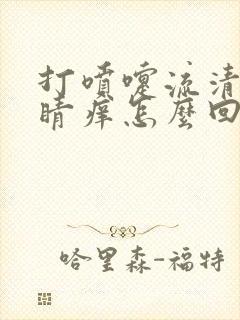 打噴嚏流清
睛痒怎麼回
哈里森-福特